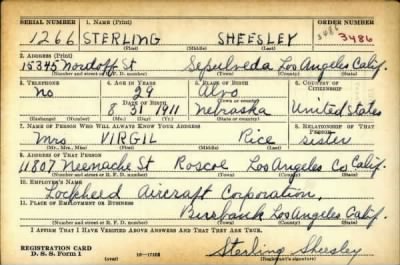 SERIAL NUMBER 1. NAME (Print) ORDER NUMBER
1266 STERLING SHEESLEY 3486 3486
(First) (Middle) (Last)
2. ADDRESS (Print)
15345 Nordoff St Sepulveda Los Angeles Calif.
(Number and street or R. F. D. number) (Town) (County) (State)
3. TELEPHONE 4. AGE IN YEARS 5. PLACE OF BIRTH 6. COUNTRY OF CITIZENSHIP
no 29 Alvo
DATE OF BIRTH (Town or county)
8 31 1911 Nebraska United States
(Exchange) (Number) (Mo.) (Day) (Yr.) (State or country)
7. NAME OF PERSON WHO WILL ALWAYS KNOW YOUR ADDRESS 8. RELATIONSHIP OF THAT PERSON
Mrs. VIRGIL Rice sister
(Mr., Mrs., Miss) (First) (Middle) (Last)
9. ADDRESS OF THAT PERSON
11807 Neenache St Roscoe Los Angeles Co Calif.
(Number and street or R. F. D. number) (Town) (County) (State)
10. EMPLOYER'S NAME
Lockheed Aircraft Corporation.
11. PLACE OF EMPLOYMENT OR BUSINESS
Burbank Los Angeles Calif.
(Number and street or R. F. D. number) (Town) (County) (State)
I AFFIRM THAT I HAVE VERIFIED ABOVE ANSWERS AND THAT THEY ARE TRUE.
REGISTRATION CARD
D. S. S. Form 1 (over) Sterling Sheesley
(Registrant's signature)